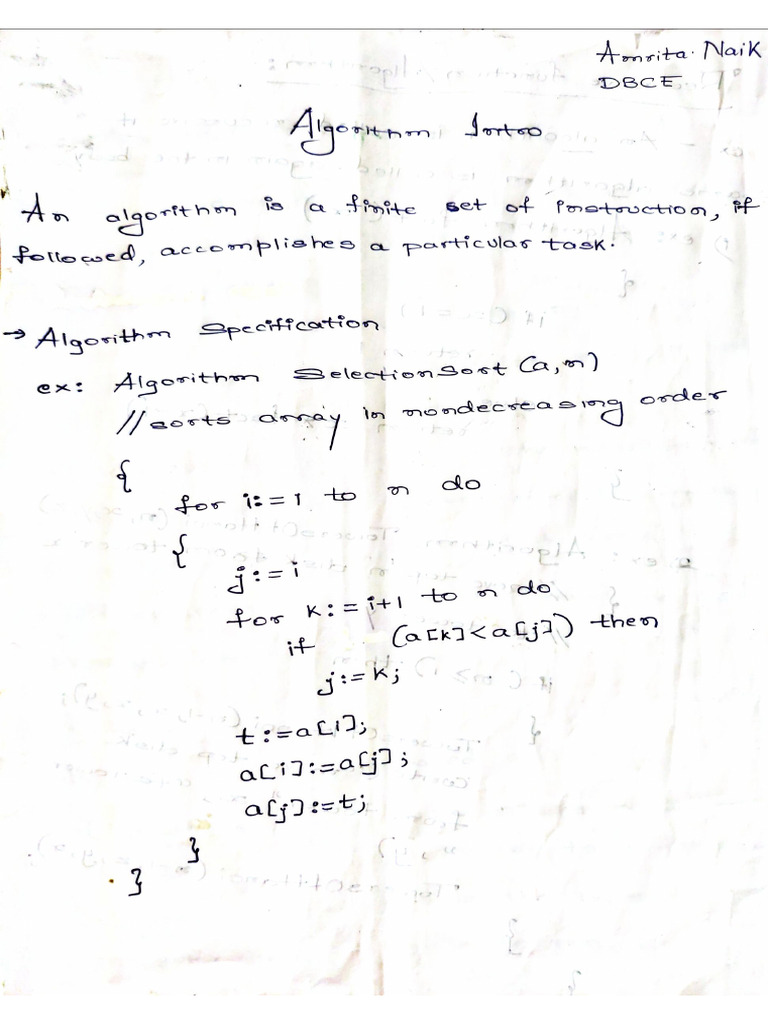 Amrita Naik
DBCE
Algorithm Intro
An algorithm is a finite set of instruction, if
followed, accomplishes a particular task.
→ Algorithm Specification
ex: Algorithm SelectionSort (a,n)
//sorts array in nondecreasing order
{
for i:=1 to n do
{
j:=i
for k:=i+1 to n do
if (a[k]<a[j]) then
j:=k;
t:=a[i];
a[i]:=a[j];
a[j]:=t;
}
}